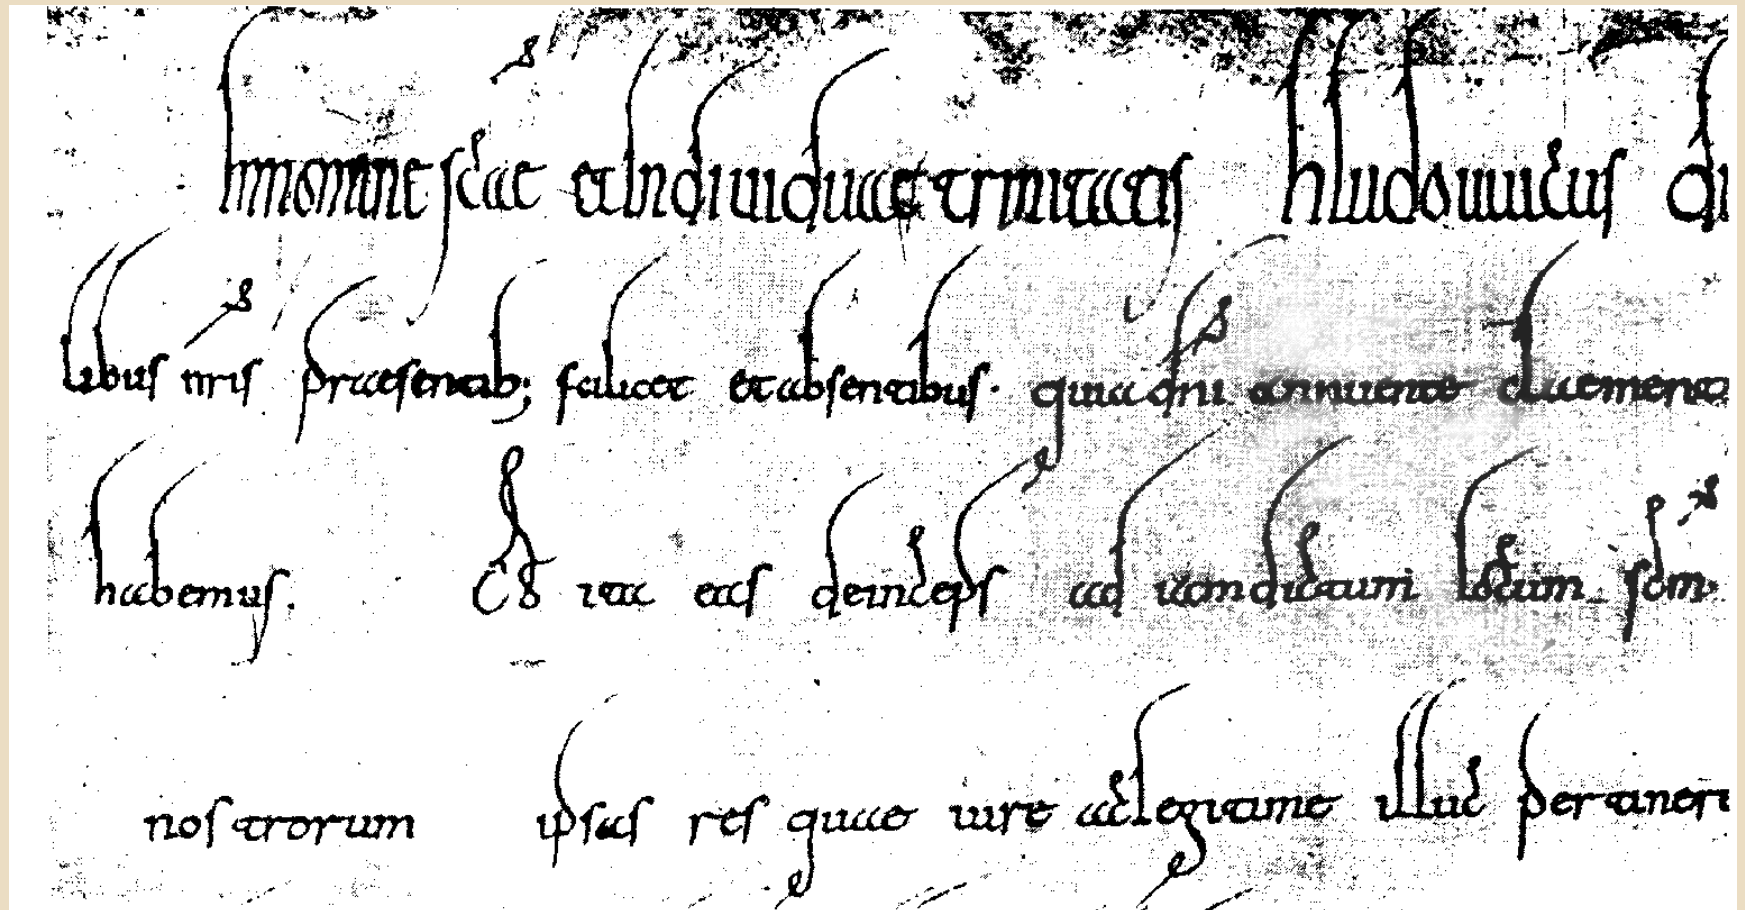 In nomine sc̄ae et indiuiduae trinitatis hludouuicus di
libus nr̄is praesentib; scilicet et absentibus. quia dn̄i annuente clementia
habemus. Et ita eas deinceps ad iam dictum locum sc̄m
nostrorum ipsas res quae iure ac legitime illuc pertinere